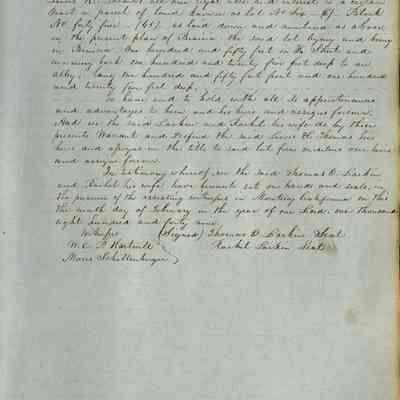 tract or parcel of land known as lot No Six - #6 - Block
No forty five - (45) as laid down and numbered as above
in the present plan of Benicia the said lot lying and being
in Benicia One hundred and fifty feet on the Street and
running back one hundred and twenty five feet deep to an
alley, being one hundred and fifty feet front and one hundred
and twenty five feet deep.
To have and to hold with all its appurtenances
and advantages to him and his heirs and assigns forever.
And we the said Larkin and Rachel his wife do by these
presents Warrant and Defend the said H. Thomas his
heirs and assigns in the title to said lot from ourselves our heirs
and assigns forever.
In testimony whereof, we the said Thomas O. Larkin
and Rachel his wife have hereunto set our hands and seals, in
the presence of the attesting witnesses in Monterey California on this
the ninth day of February in the year of our Lord, one thousand
eight hundred and forty nine.
Witness (Signed) Thomas O. Larkin Seal
W. E. P. Hartnell Rachel Larkin Seal
Moses Schallenberger